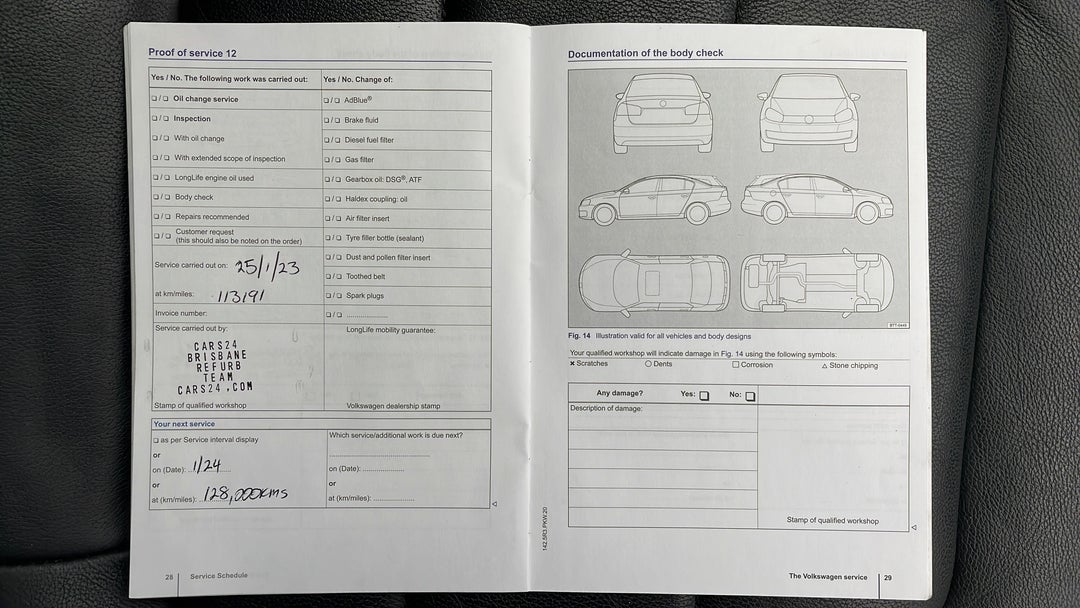 Proof of service 12
Yes / No. The following work was carried out:
❏ / ❏ Oil change service
❏ / ❏ Inspection
❏ / ❏ With oil change
❏ / ❏ With extended scope of inspection
❏ / ❏ LongLife engine oil used
❏ / ❏ Body check
❏ / ❏ Repairs recommended
❏ / ❏ Customer request
(this should also be noted on the order)
Service carried out on: 25/1/23
at km/miles: 113191
Invoice number:
Service carried out by:
CARS24
BRISBANE
REFURB
TEAM
CARS24.COM
Stamp of qualified workshop
Yes / No. Change of:
❏ / ❏ AdBlue®
❏ / ❏ Brake fluid
❏ / ❏ Diesel fuel filter
❏ / ❏ Gas filter
❏ / ❏ Gearbox oil: DSG®, ATF
❏ / ❏ Haldex coupling: oil
❏ / ❏ Air filter insert
❏ / ❏ Tyre filler bottle (sealant)
❏ / ❏ Dust and pollen filter insert
❏ / ❏ Toothed belt
❏ / ❏ Spark plugs
❏ / ❏ ....................
LongLife mobility guarantee:
Volkswagen dealership stamp
Your next service
❏ as per Service interval display
or
on (Date): 1/24
or
at (km/miles): 128,000kms
Which service/additional work is due next?
on (Date): ....................
or
at (km/miles): ....................
28 Service Schedule
Documentation of the body check
BTT-0445
Fig. 14 Illustration valid for all vehicles and body designs
Your qualified workshop will indicate damage in Fig. 14 using the following symbols:
× Scratches ○ Dents □ Corrosion △ Stone chipping
Any damage? Yes: ❏ No: ❏
Description of damage:
Stamp of qualified workshop
142.5R3.PKW.20
The Volkswagen service 29